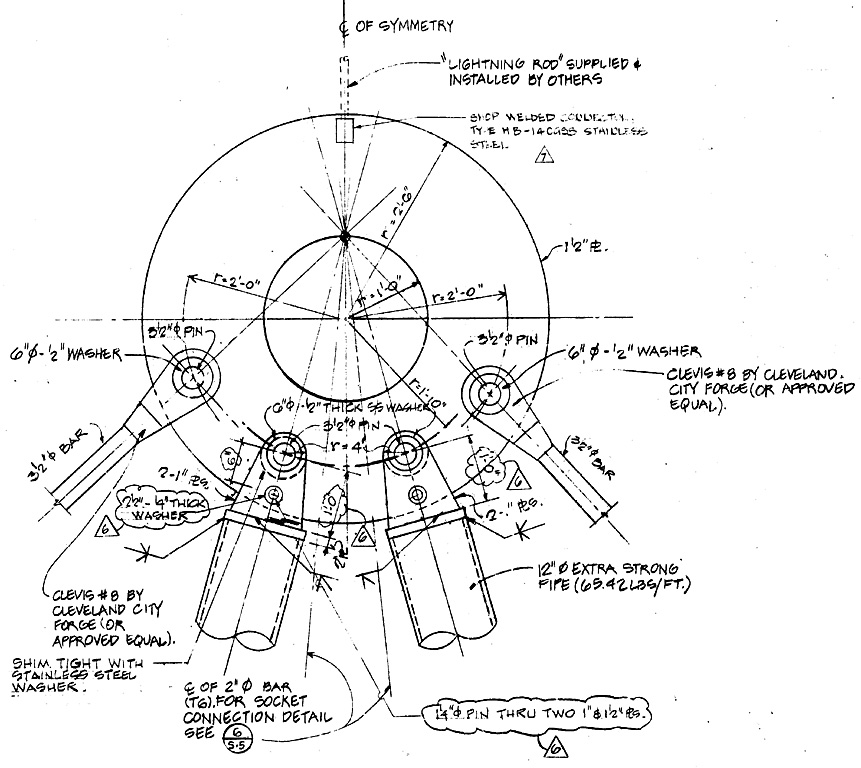 ℄ OF SYMMETRY
"LIGHTNING ROD" SUPPLIED &
INSTALLED BY OTHERS
SHOP WELDED
STAINLESS
STEEL
7
r=2'-6"
1½" PL.
r=2'-0"
r=1'-0"
r=2'-0"
3½"φ PIN
6"φ-½" WASHER
3½"φ PIN
6"φ-½" WASHER
CLEVIS #8 BY CLEVELAND
CITY FORGE (OR APPROVED
EQUAL).
r=1'-0"
6"φ-½" THICK SS WASHER
3½"φ PIN
r=4"
3½"φ BAR
3½"φ BAR
(6")
2-1" PLS.
2½"-¼" THICK
WASHER
6
1'-0"
6
6
2-1" PLS.
12"φ EXTRA STRONG
PIPE (65.42 LBS/FT.)
CLEVIS #8 BY
CLEVELAND CITY
FORGE (OR
APPROVED EQUAL).
SHIM TIGHT WITH
STAINLESS STEEL
WASHER.
℄ OF 2"φ BAR
(TG). FOR SOCKET
CONNECTION DETAIL
SEE 6
S-5
1¼"φ PIN THRU TWO 1" & 1½" PLS.
6